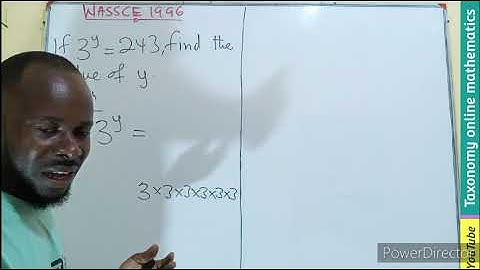 WASSCE 1996
If 3^y = 243, find the
value of y.
3^y =
3×3×3×3×3×3
Taxonomy online mathematics
YouTube
PowerDirector